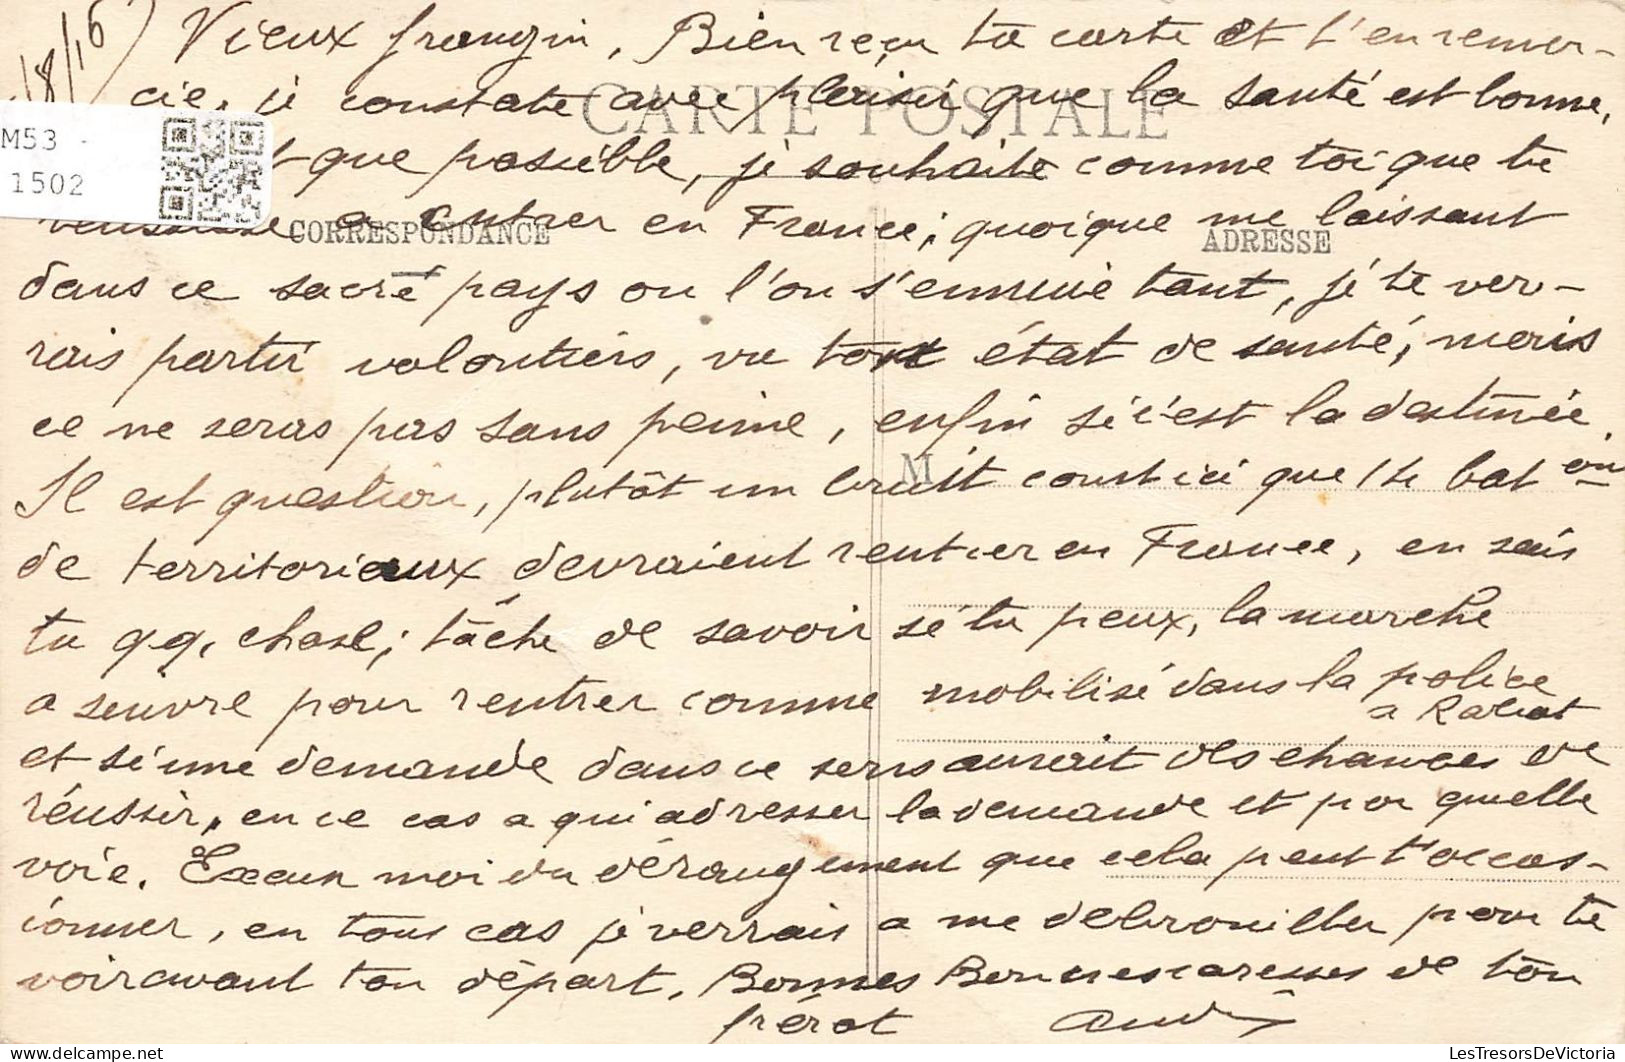 18/16 Vieux frangin, Bien reçu ta carte et t'en remer-
cie, je constate avec plaisir que la santé est bonne,
CARTE POSTALE
M53 -
1502
que possible, je souhaite comme toi que tu
a entrer en France; quoique me laissant
CORRESPONDANCE
ADRESSE
dans ce sacré pays ou l'on s'ennuie tant, je te ver-
rais partir volontiers, vu ton état de santé, mais
ce ne seras pas sans peine, enfin si c'est la destinée.
M
Il est question, plutôt un bruit court ici que le bat on
de territoriaux devraient rentrer en France, en sais
tu qq. chose; tâche de savoir si tu peux, la marche
a suivre pour rentrer comme mobilisé dans la police
a Rabat
et si une demande dans ce sens aurait des chances de
réussir, en ce cas a qui adresser la demande et par quelle
voie. Excuse moi du dérangement que cela peut t'occas-
ionner, en tous cas je verrais a me debrouiller pour te
voir avant ton départ. Bonnes caresses de ton
frérot André
LesTresorsDeVictoria